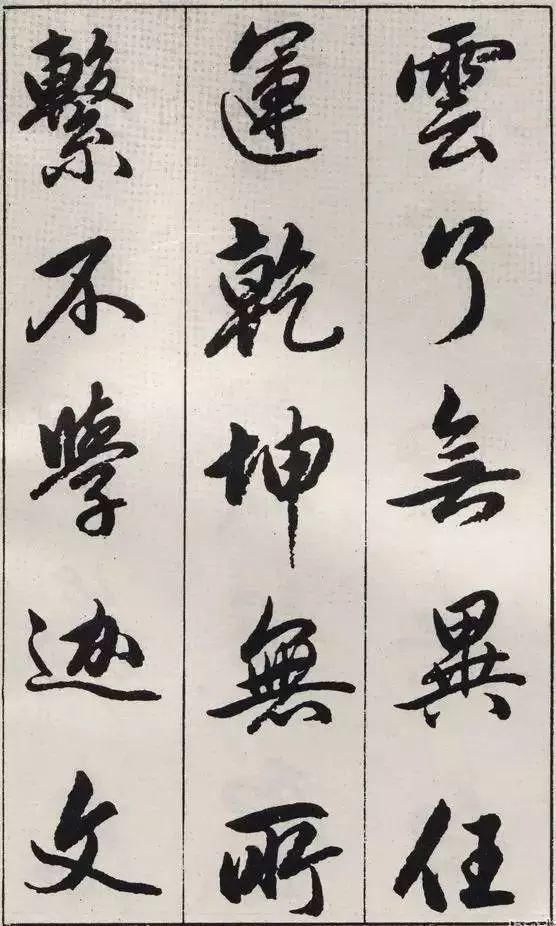 雲兮無異任
運乾坤無所
繫不學迦文